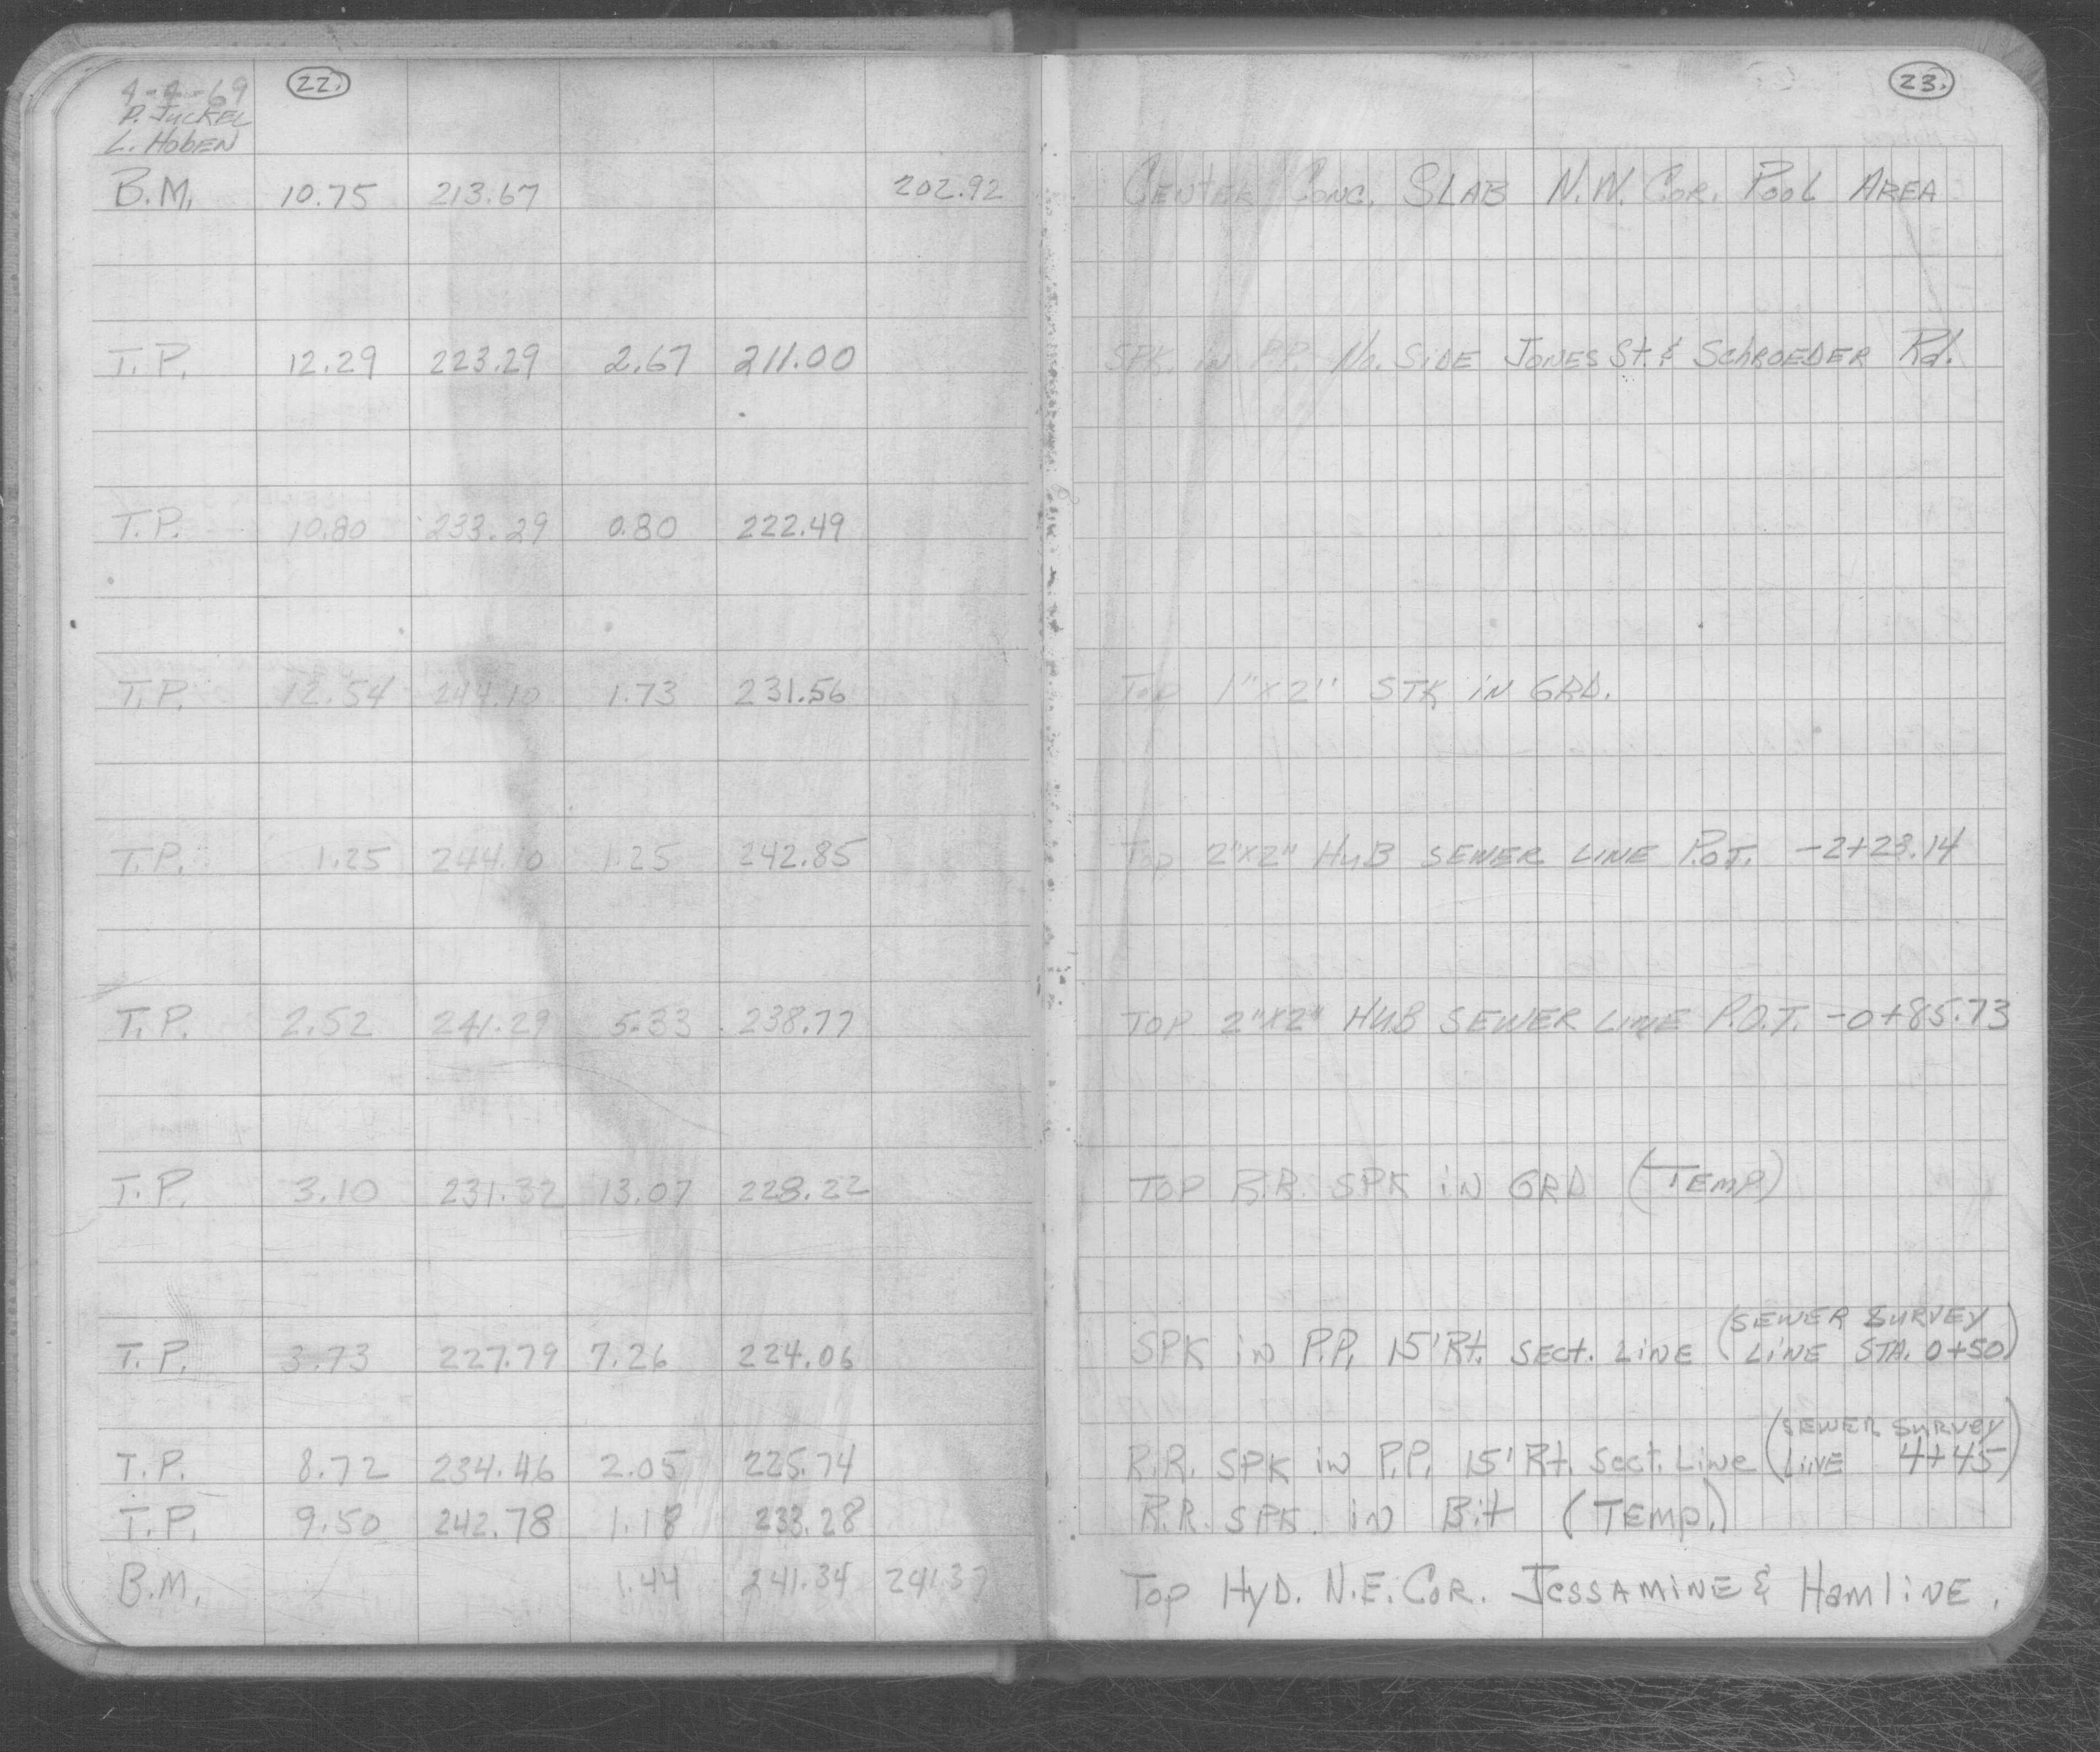 22.
4-4-69
P. Juckel
L. Hoben
B.M. 10.75 213.67 202.92
T.P. 12.29 223.29 2.67 211.00
T.P. 10.80 233.29 0.80 222.49
T.P. 12.54 244.10 1.73 231.56
T.P. 1.25 244.10 1.25 242.85
T.P. 2.52 241.29 5.33 238.77
T.P. 3.10 231.32 13.07 228.22
T.P. 3.73 227.79 7.26 224.06
T.P. 8.72 234.46 2.05 225.74
T.P. 9.50 242.78 1.18 233.28
B.M. 1.44 241.34 241.37
23.
CENTER CONC. SLAB N.W. COR. POOL AREA
SPK. IN P.P. No. SIDE JONES St. & SCHROEDER Rd.
TOP 1"X2" STK IN GRD.
TOP 2"X2" HUB SEWER LINE P.O.T. -2+23.14
TOP 2"X2" HUB SEWER LINE P.O.T. -0+85.73
TOP R.R. SPK IN GRD (TEMP)
SPK in P.P. 15' Rt. SECT. LINE (SEWER SURVEY
LINE STA. 0+50)
R.R. SPK in P.P. 15' Rt. Sect. Line (SEWER SURVEY
LINE 4+45)
R.R. SPK. in Bit (TEMP.)
TOP HYD. N.E. COR. JESSAMINE & HAMLINE.